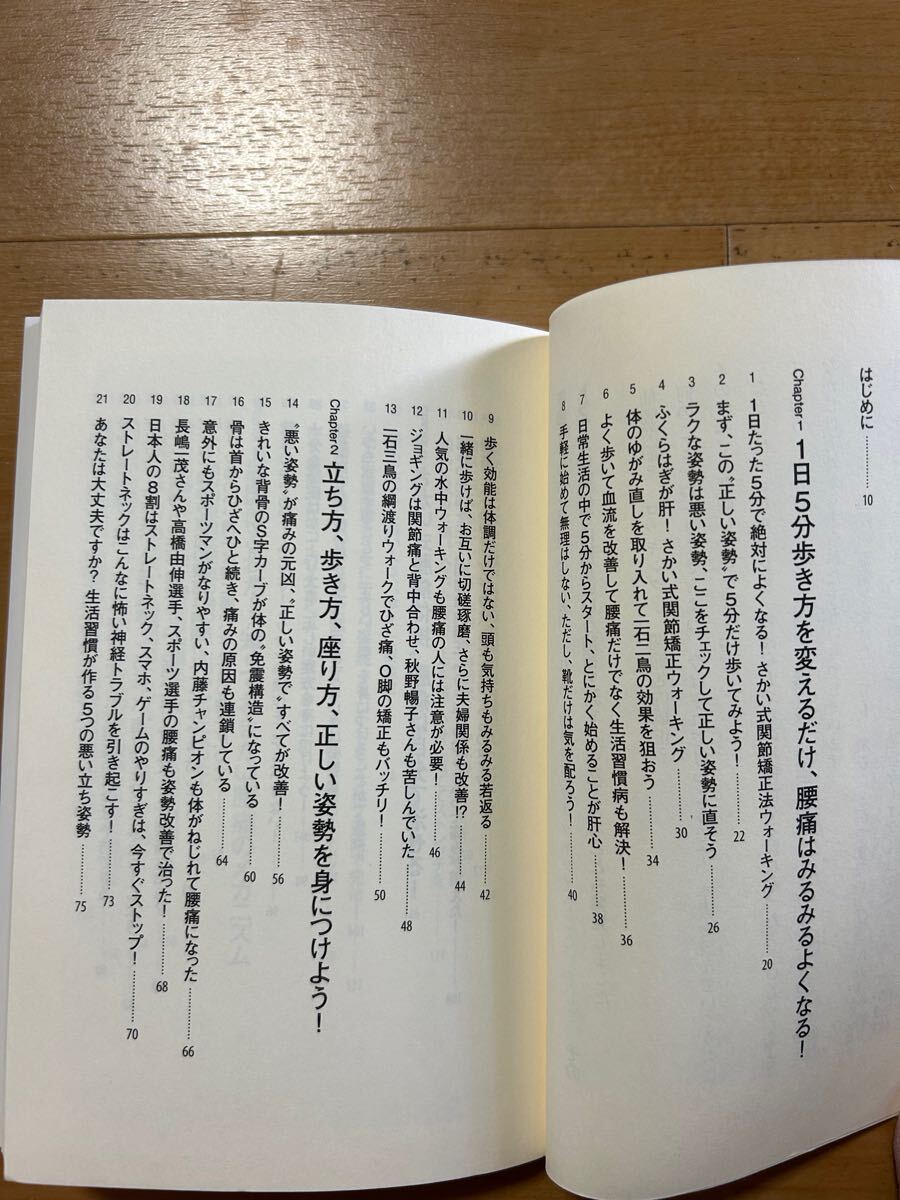 はじめに…………10
Chapter 1 1日5分歩き方を変えるだけ、腰痛はみるみるよくなる！
1 1日たった5分で絶対によくなる！さかい式関節矯正法ウォーキング…………20
2 まず、この〝正しい姿勢〟で5分だけ歩いてみよう！…………22
3 ラクな姿勢は悪い姿勢、ここをチェックして正しい姿勢に直そう…………26
4 ふくらはぎが肝！さかい式関節矯正ウォーキング…………30
5 体のゆがみ直しを取り入れて一石二鳥の効果を狙おう…………34
6 よく歩いて血流を改善して腰痛だけでなく生活習慣病も解決！…………36
7 日常生活の中で5分からスタート、とにかく始めることが肝心…………38
8 手軽に始めて無理はしない、ただし、靴だけは気を配ろう！…………40
9 歩く効能は体調だけではない、頭も気持ちもみるみる若返る…………42
10 一緒に歩けば、お互いに切磋琢磨、さらに夫婦関係も改善!?…………44
11 人気の水中ウォーキングも腰痛の人には注意が必要！…………46
12 ジョギングは関節痛と背中合わせ、秋野暢子さんも苦しんでいた…………48
13 一石三鳥の綱渡りウォークでひざ痛、O脚の矯正もバッチリ！…………50
Chapter 2 立ち方、歩き方、座り方、正しい姿勢を身につけよう！
14 〝悪い姿勢〟が痛みの元凶、〝正しい姿勢で〟すべてが改善！…………56
15 きれいな背骨のS字カーブが体の〝免震構造〟になっている…………60
16 骨は首からひざへひと続き、痛みの原因も連鎖している…………64
17 意外にもスポーツマンがなりやすい、内藤チャンピオンも体がねじれて腰痛になった…………66
18 長嶋一茂さんや高橋由伸選手、スポーツ選手の腰痛も姿勢改善で治った！…………68
19 日本人の8割はストレートネック、スマホ、ゲームのやりすぎは、今すぐストップ！…………70
20 ストレートネックはこんなに怖い神経トラブルを引き起こす！…………73
21 あなたは大丈夫ですか？生活習慣が作る5つの悪い立ち姿勢…………75